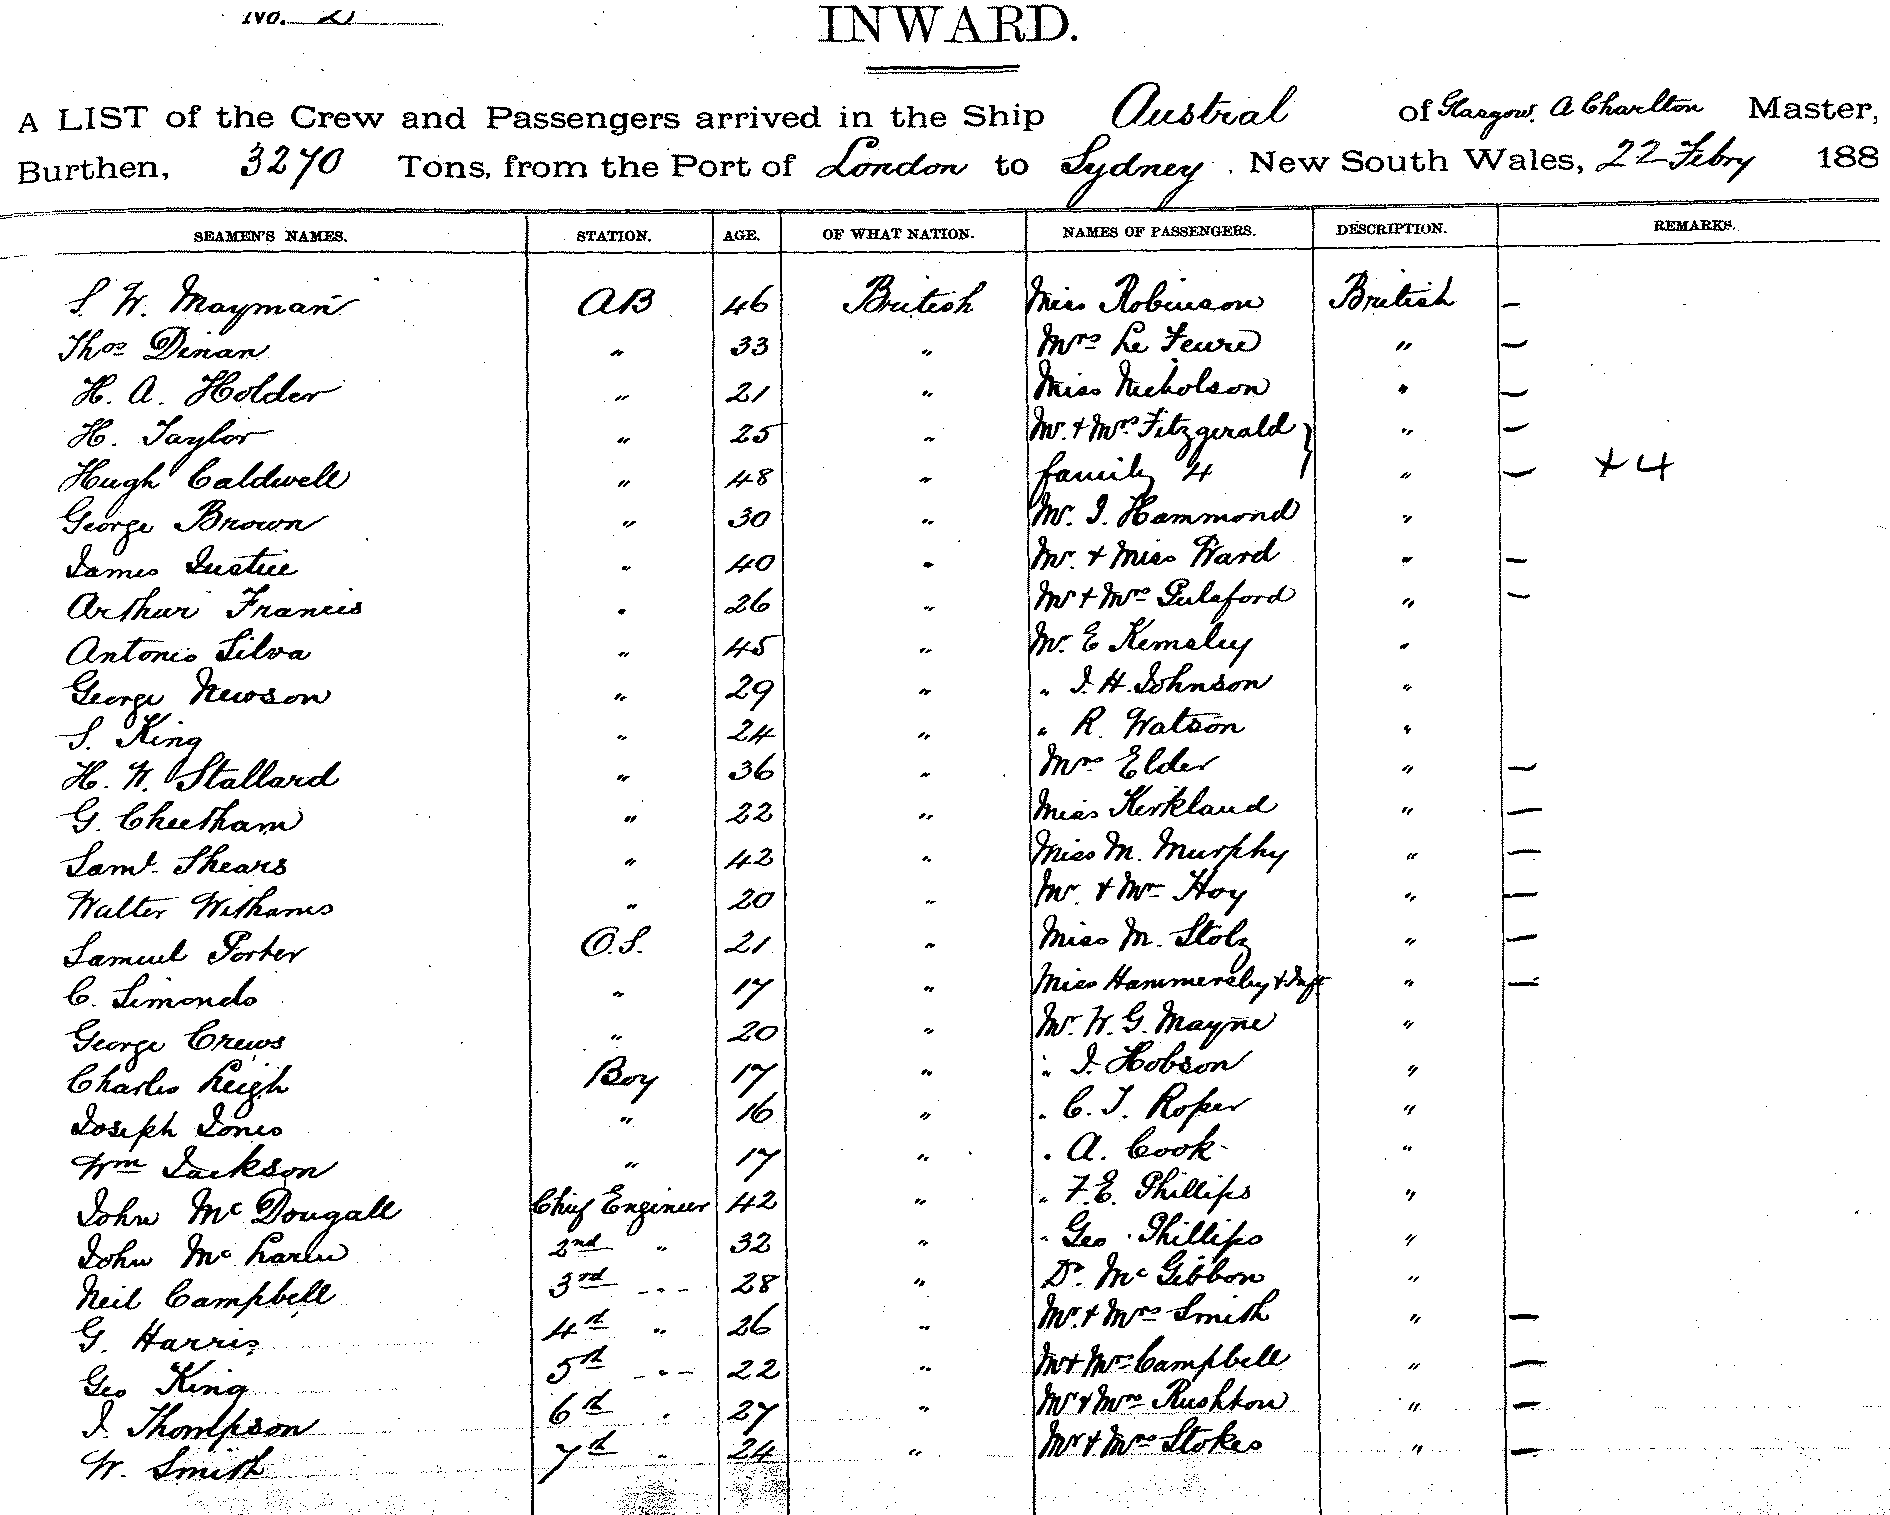 No. 21
INWARD.
A LIST of the Crew and Passengers arrived in the Ship Austral of Glasgow. A Charlton Master,
Burthen, 3270 Tons, from the Port of London to Sydney. New South Wales, 22 Febry 188
SEAMEN'S NAMES. STATION. AGE. OF WHAT NATION. NAMES OF PASSENGERS. DESCRIPTION. REMARKS.
S. W. Mayman AB 46 British Miss Robinson British —
Thos Dinan " 33 " Mrs Le Feure " —
H. A. Holder " 21 " Miss Nicholson " —
H. Taylor " 25 " Mr. + Mrs Fitzgerald } " —
Hugh Caldwell " 48 " family 4 " — + 4
George Brown " 30 " Mr. J. Hammond "
James Justice " 40 " Mr. + Miss Ward " —
Arthur Francis " 26 " Mr + Mrs Pulsford " —
Antonio Silva " 45 " Mr. E Kemsley "
George Newson " 29 " " J. H. Johnson "
S. King " 24 " " R. Watson "
H. W. Stallard " 36 " Mrs Elder " —
G. Cheetham " 22 " Miss Kirkland " —
Saml. Shears " 42 " Miss M. Murphy " —
Walter Withams " 20 " Mr. + Mrs Hoy " —
Samuel Porter O.S. 21 " Miss M. Stolz " —
C. Simonds " 17 " Miss Hammersley + Inft " —
George Crews " 20 " Mr. W. G. Mayne "
Charles Leigh Boy 17 " " J. Hobson "
Joseph Jones " 16 " " C. J. Roper "
Wm Jackson " 17 " " A. Cook "
John McDougall Chief Engineer 42 " " F. E. Phillips "
John McLaren 2nd " 32 " " Geo. Phillips "
Neil Campbell 3rd " 28 " Dr. McGibbon "
G. Harris 4th " 26 " Mr. + Mrs Smith " —
Geo King 5th " 22 " Mr + Mrs Campbell " —
J. Thompson 6th " 27 " Mr + Mrs Rushton " —
W. Smith 7th " 24 " Mr + Mrs Stokes " —